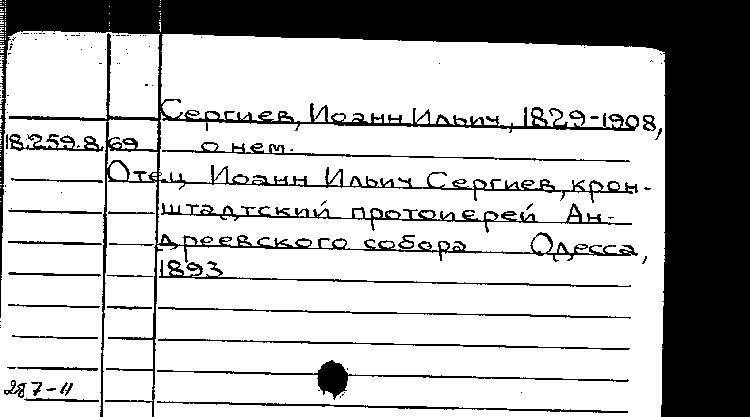 Сергиев, Иоанн Ильич, 1829-1908,
18.259.8.69 о нем.
Отец Иоанн Ильич Сергиев, крон-
штадтский протоиерей Ан-
дреевского собора Одесса,
1893
287-11